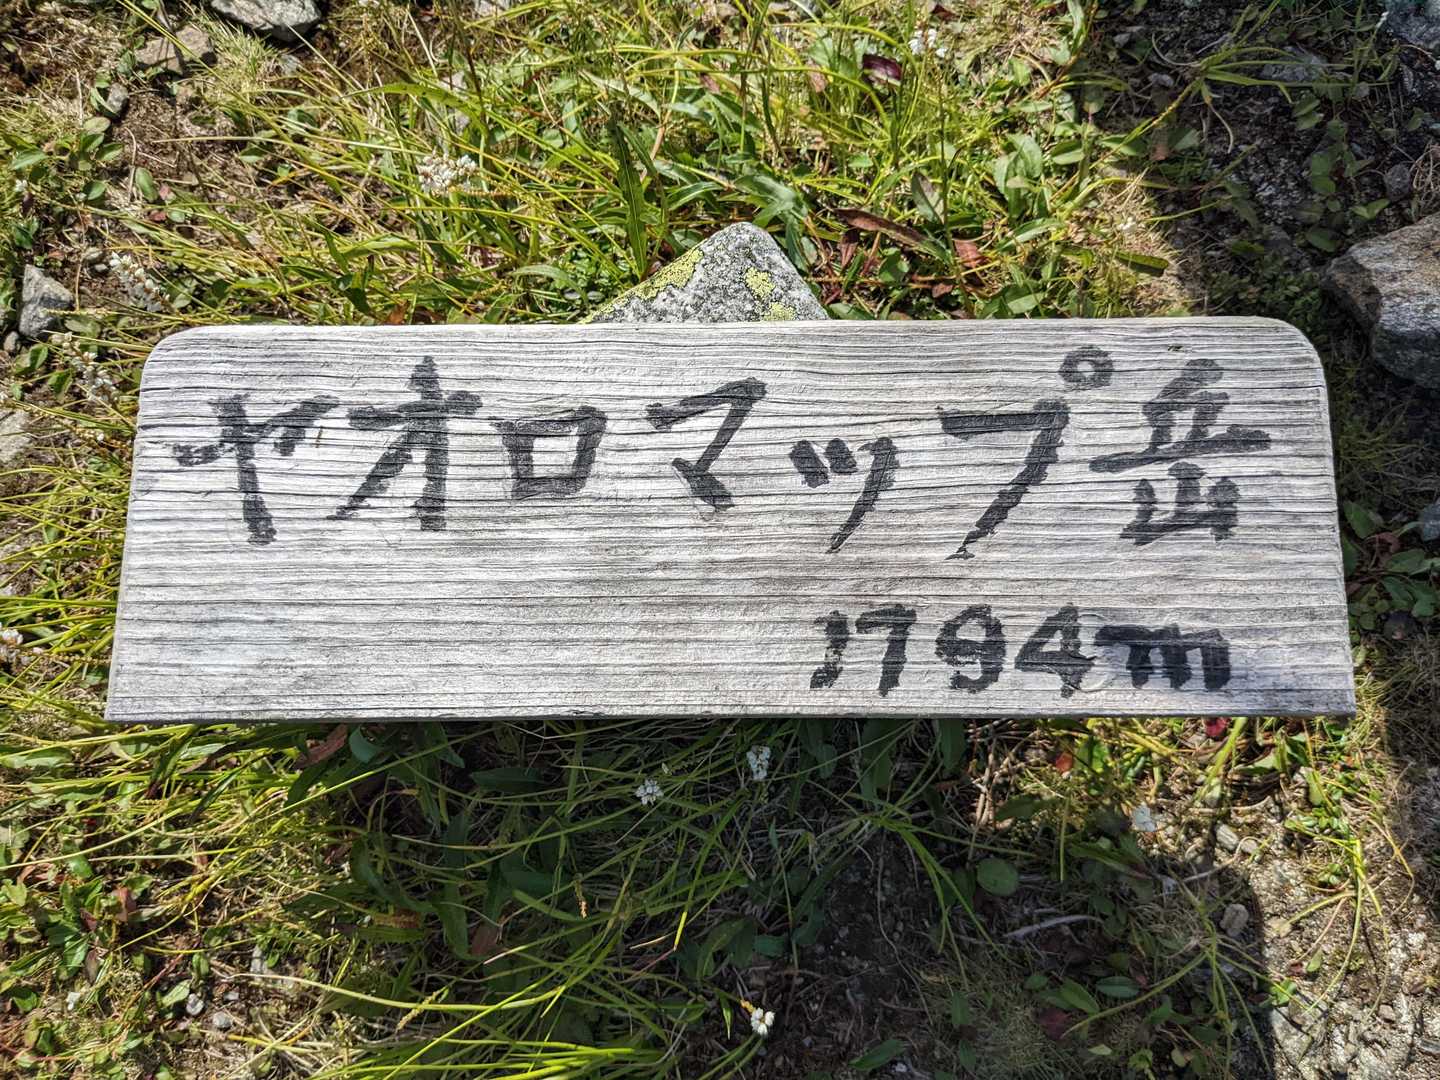 ヤオロマップ岳
1794m